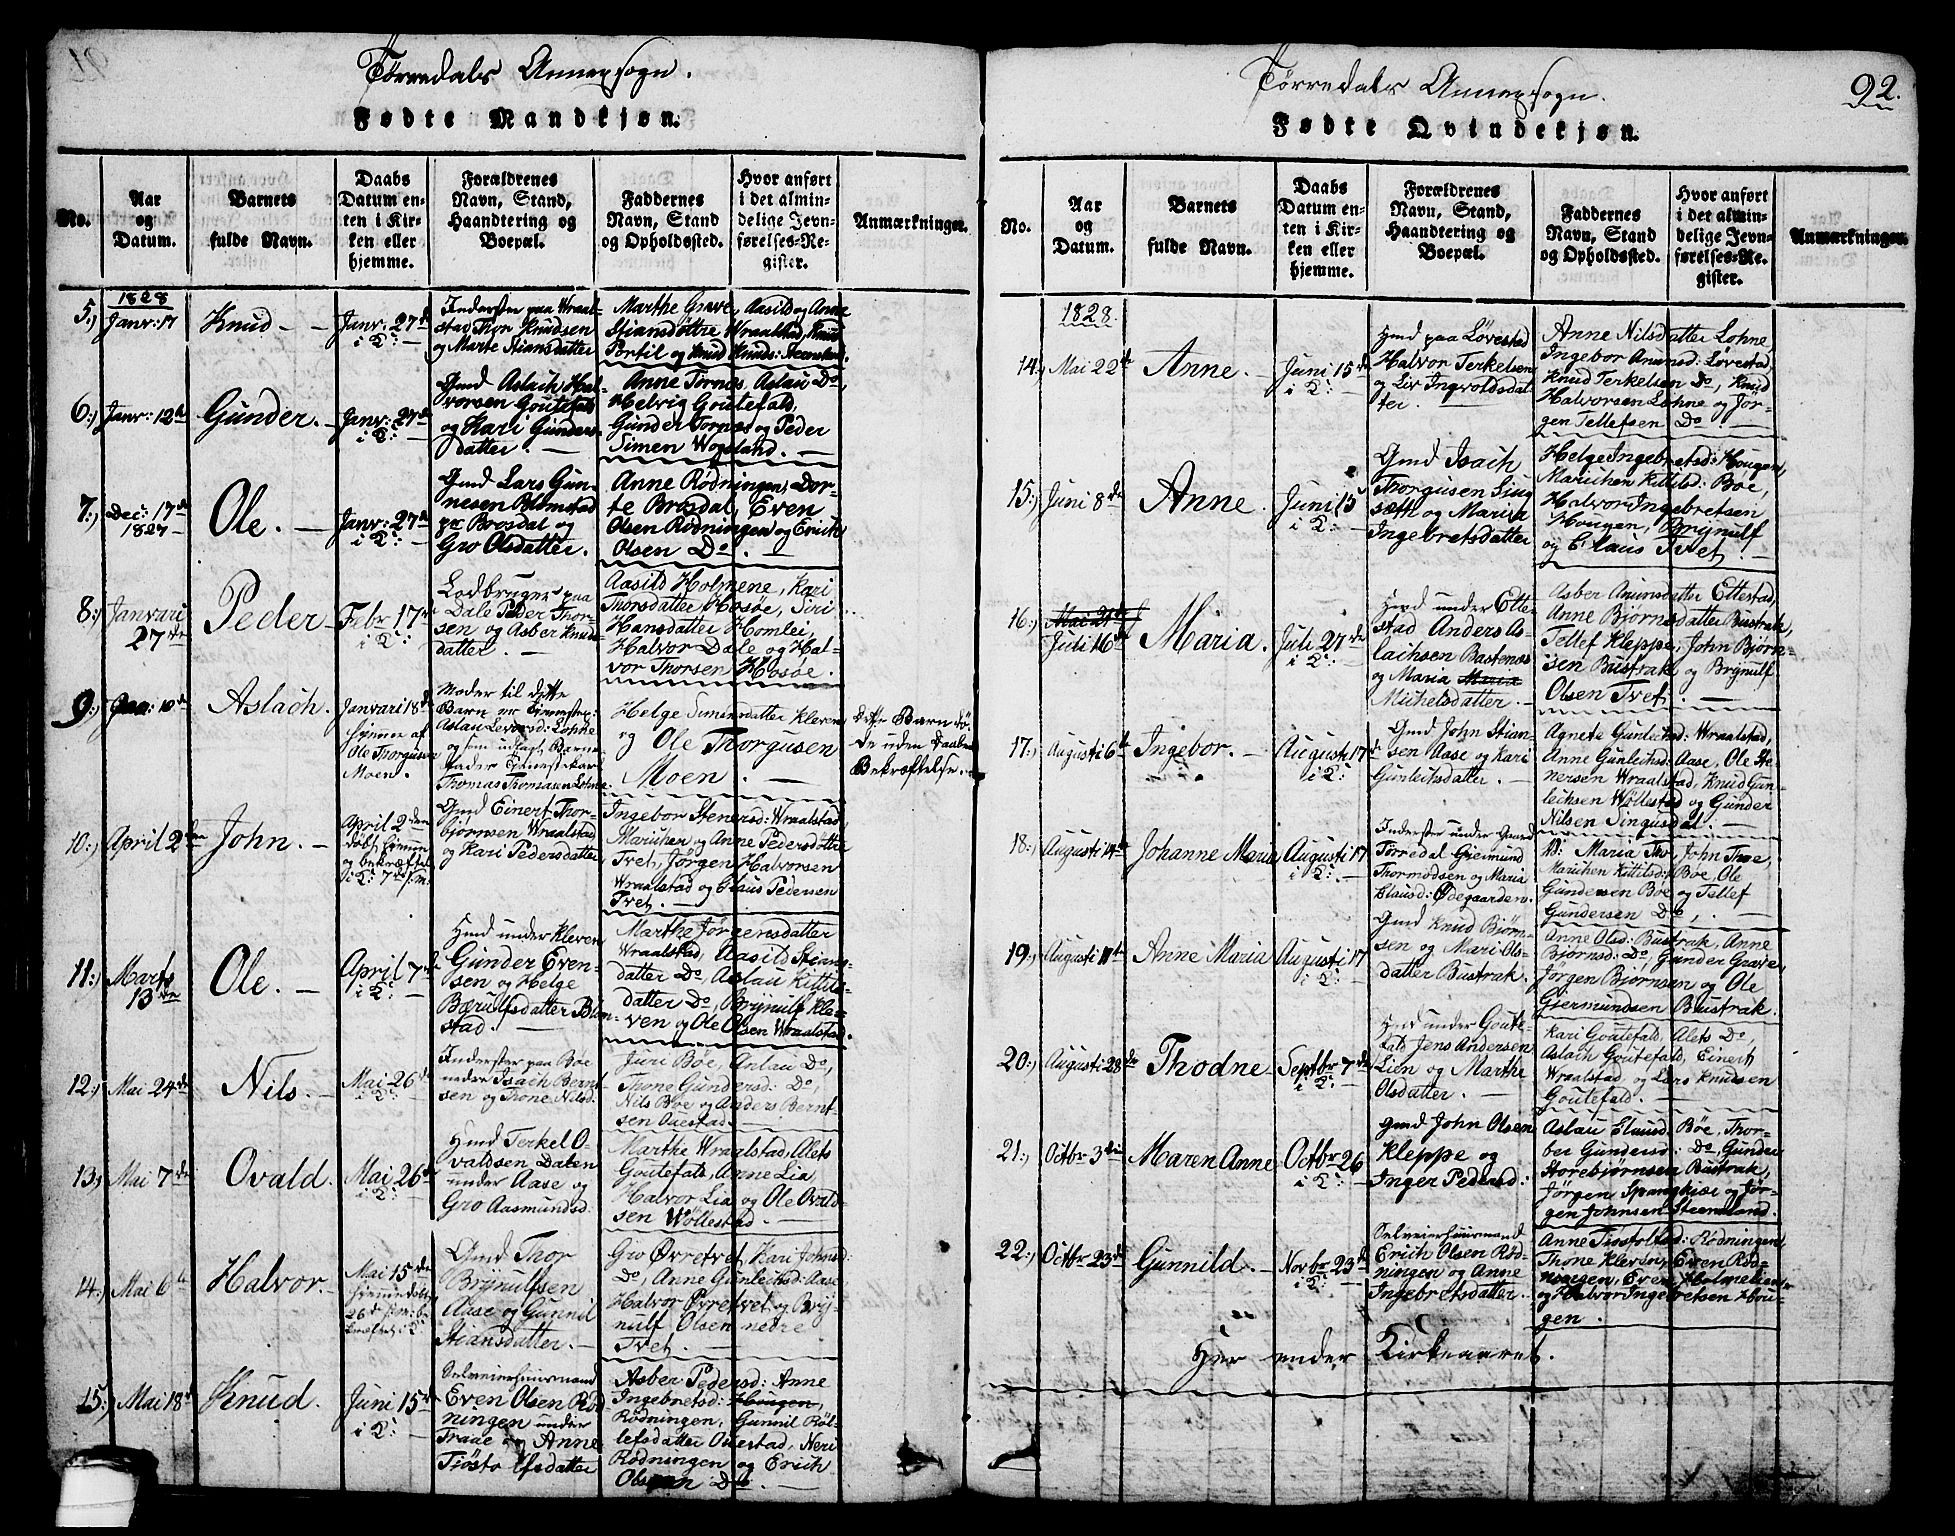 Törredals Annexsogn.
Fødte Mandkjøn.
No.
Aar
og
Datum.
Barnets
fulde Navn.
Daabs
Datum en-
ten i Kir-
ken eller
hjemme.
Forældrenes
Navn, Stand,
Haandtering og
Boepæl.
Faddernes
Navn, Stand
og Opholdssted.
Hvor anført
i det almin-
delige Jevn-
førelses-Re-
gister.
Anmærkninger.
1828
5.) Janr: 17
Knud
Janr: 27de
i K:
Inderster paa Wraal-
stad Thor Knudsen
og Marte Stiansdatter
Marthe Grave, Aasild og Anne
Stiansdøttre Wraalstad, Knud
Portil og Knud Knuds: Steensland.
6.) Janr: 12te
Gunder.
Janr: 27de
i K:
Gmd Aslach Hal-
vorsen Goutefald
og Kari Gunders-
datter.
Anne Tornes, Aslau Do
Helvig Goutefald,
Gunder Tornes og Peder
Simen Wogsland.
7.) Dec: 17de
1827
Ole.
Janr: 27de
i K:
Gmd Lars Gun-
nesen Blomstad
pr Brosdal og
Gro Olsdatter.
Anne Rødningen, Dor-
te Brosdal, Even
Olsen Rødningen og Erich
Olsen Do.
8.) Janvari
27de
Peder
Febr 17de
i K:
Lodbruger paa
Dale Peder Thor-
sen og Asber Knuds-
datter.
Aasild Holmene, Kari
Thorsdatter Hosøe, Siri
Hansdatter Homlei,
Halvor Dale og Hal-
vor Thorsen Hosøe.
9.) Jan: 10de
Aslach.
Janvari 18de
hjemme af
Ole Thorgusen
Moen.
Moder til dette
Barn er Tjenestep:
Aslau Levorsd: Lohne
og som udlagt Barne-
fader Tjenestekarl
Thomas Thomasen Lohne
Helge Simensdatter Kleven
og Ole Thorgusen
Moen.
Dette Barn dö-
de uden Daabs
Bekræftelse.
10.) April 2den
John.
April 2den
döbt hjemme
og bekræftet
i K: 7de s: m:
Gmd Einert Thor-
bjørnsen Wraalstad
og Kari Pedersdatter
Ingebor Stenersd: Wraalstad,
Marichen og Anne Pedersdøttre
Tvet, Jørgen Halvorsen
Wraalstad og Claus Pedersen
Tvet.
11.) Marts
13de
Ole.
April 7de
i K:
Hmd under Kleven
Gunder Even-
sen og Helge
Bærulfsdatter Blom-
stad.
Marthe Jørgensdatter
Wraalstad, Aasild Stians-
datter Do, Aslau Kittils-
datter Do, Brynulf Kle-
ven og Ole Olsen Wraalstad.
12.) Mai 24de
Nils.
Mai 26de
i K:
Inderster paa Boe
nedre Isach Bernt-
sen og Thone Nilsd.
Juri Bøe, Anlau Do,
Thone Gundersd: Do,
Nils Boe og Anders Bernt-
sen Ouestad.
13.) Mai 7de
Ovald.
Mai 26de
i K:
Hmd Terkel O-
valdsen Dalen
under Aase og
Gro Aasmundsd:
Marthe Wraalstad, Alets
Goutefald, Anne Lia
Halvor Lia og Ole Ovald-
sen Wöllestad.
14.) Mai 6te
Halvor.
Mai 15de
hjemmedöbt
26de s: m: be-
kræftet i K:
Gmd Thor
Brynulfsen
Aase og Gunnil
Stiansdatter.
Gro Øvretvet, Kari Johnsd:
Do, Anne Gunleichsd: Aase
Halvor Øvretvet og Bryn-
nulf Olsen nedre
Tvet.
15.) Mai 18de
Knud.
Juni 15de
i K:
Selveierhuusmand
Even Olsen Rød-
ningen under
Traae og Anne
Tjøstolfsdatter
Asber Pedersd: Anne
Ingebretsd: Hougen,
Rødningen, Gunnil Röl-
lefsdatter Ouestad, Neri
Rødningen og Erich
Olsen Do
92.
Törredals Annexsogn.
Fødte Qvindekjøn.
No.
Aar
og
Datum.
Barnets
fulde Navn.
Daabs
Datum en-
ten i Kir-
ken eller
hjemme.
Forældrenes
Navn, Stand,
Haandtering og
Boepæl.
Faddernes
Navn, Stand
og Opholdssted.
Hvor anført
i det almin-
delige Jevn-
førelses-Re-
gister.
Anmærkninger.
1828.
14.) Mai 22de
Anne.
Juni 15de
i K:
Hmd paa Løvestad
Halvor Terkelsen
og Liv Ingvoldsdat-
ter.
Anne Nilsdatter Lohne
Ingebor Anunsd: Løvestad,
Knud Terkelsen Do, Knud
Halvorsen Lohne og Jör-
gen Tellefsen Do.
15.) Juni 8de
Anne.
Juni 15
i K:
Gmd Isach
Thorgusen Ljug
sætt og Maria
Ingebretsdatter
Helge Ingebretsd: Hougen,
Marichen Kittilsd: Boe,
Halvor Ingebretsen
Hougen, Brynulf
og Claus Tvet.
16.) Mai 21de
Juli 16de
Maria.
Juli 27de
i K:
Hmd under Ette-
stad Anders As-
lachsen Bastenes
og Maria Maria
Michelsdatter.
Asber Anunsdatter Ettestad,
Anne Bjørnsdatter Bustrak,
Tellef Kleppe, John Bjørn-
sen Bustrak og Brynulf
Olsen Tvet.
17.) Augusti 6te
Ingebor.
Augusti 17de
i K:
Gmd John Stian-
sen Aase og Kari
Gunleiksdatter.
Agnete Gunleichsd: Wraalstad,
Anne Gunleichsd: Aase, Ole Ste-
nersen Wraalstad, Knud Gun-
leichsen Wöllestad og Gunder
Nilsen Singusdal.
18.) Augusti 14de
Johanne Maria
Augusti 17
i K:
Inderster under Gaard
Törredal Gjeimund
Thormodsen og Maria
Clausd: Ödegaarden.
Maria Tho, John Thoe,
Marichen Kittilsd: Boe, Ole
Gundersen Boe og Tellef
Gundersen Do.
19.) Augusti 11te
Anne Maria
Augusti 17
i K:
Gmd Knud Bjørn-
sen og Mari Ols-
datter Bustrak.
Anne Olsd: Bustrak, Anne
Bjørnsd: Do, Gunder Grave,
Jørgen Bjørnsen og Ole
Gjermundsen Bustrak.
20.) Augusti 28de
Thodne
Septbr 7de
i K:
Hmd under Goute-
fald Jens Andersen
Lien og Marthe
Olsdatter.
Kari Goutefald, Alets Do,
Aslach Goutefald, Einert
Wraalstad og Lars Knudsen
Goutefald.
21.) Octbr 3die
Maren Anne
Octbr 26
i K:
Gmd John Olsen
Kleppe og
Inger Pedersd:
Aslau Clausd: Bøe, Thor-
ber Gundersd: Do, Gunder
Storebjørnsen Bustrak,
Jørgen Spangkiæ og Jör-
gen Johnsen Steensland.
22.) Octbr 23de
Gunnild.
Novbr 23de
i K:
Selveierhuusmand
Erich Olsen Rød-
ningen og Anne
Ingebretsdatter.
Anne Tiostolfsd: Rødningen
Thone Kleven, Even Rød-
ningen, Even Holmelien
og Halvor Ingebretsen Hou-
gen.
Her ender Kirkeaaret.